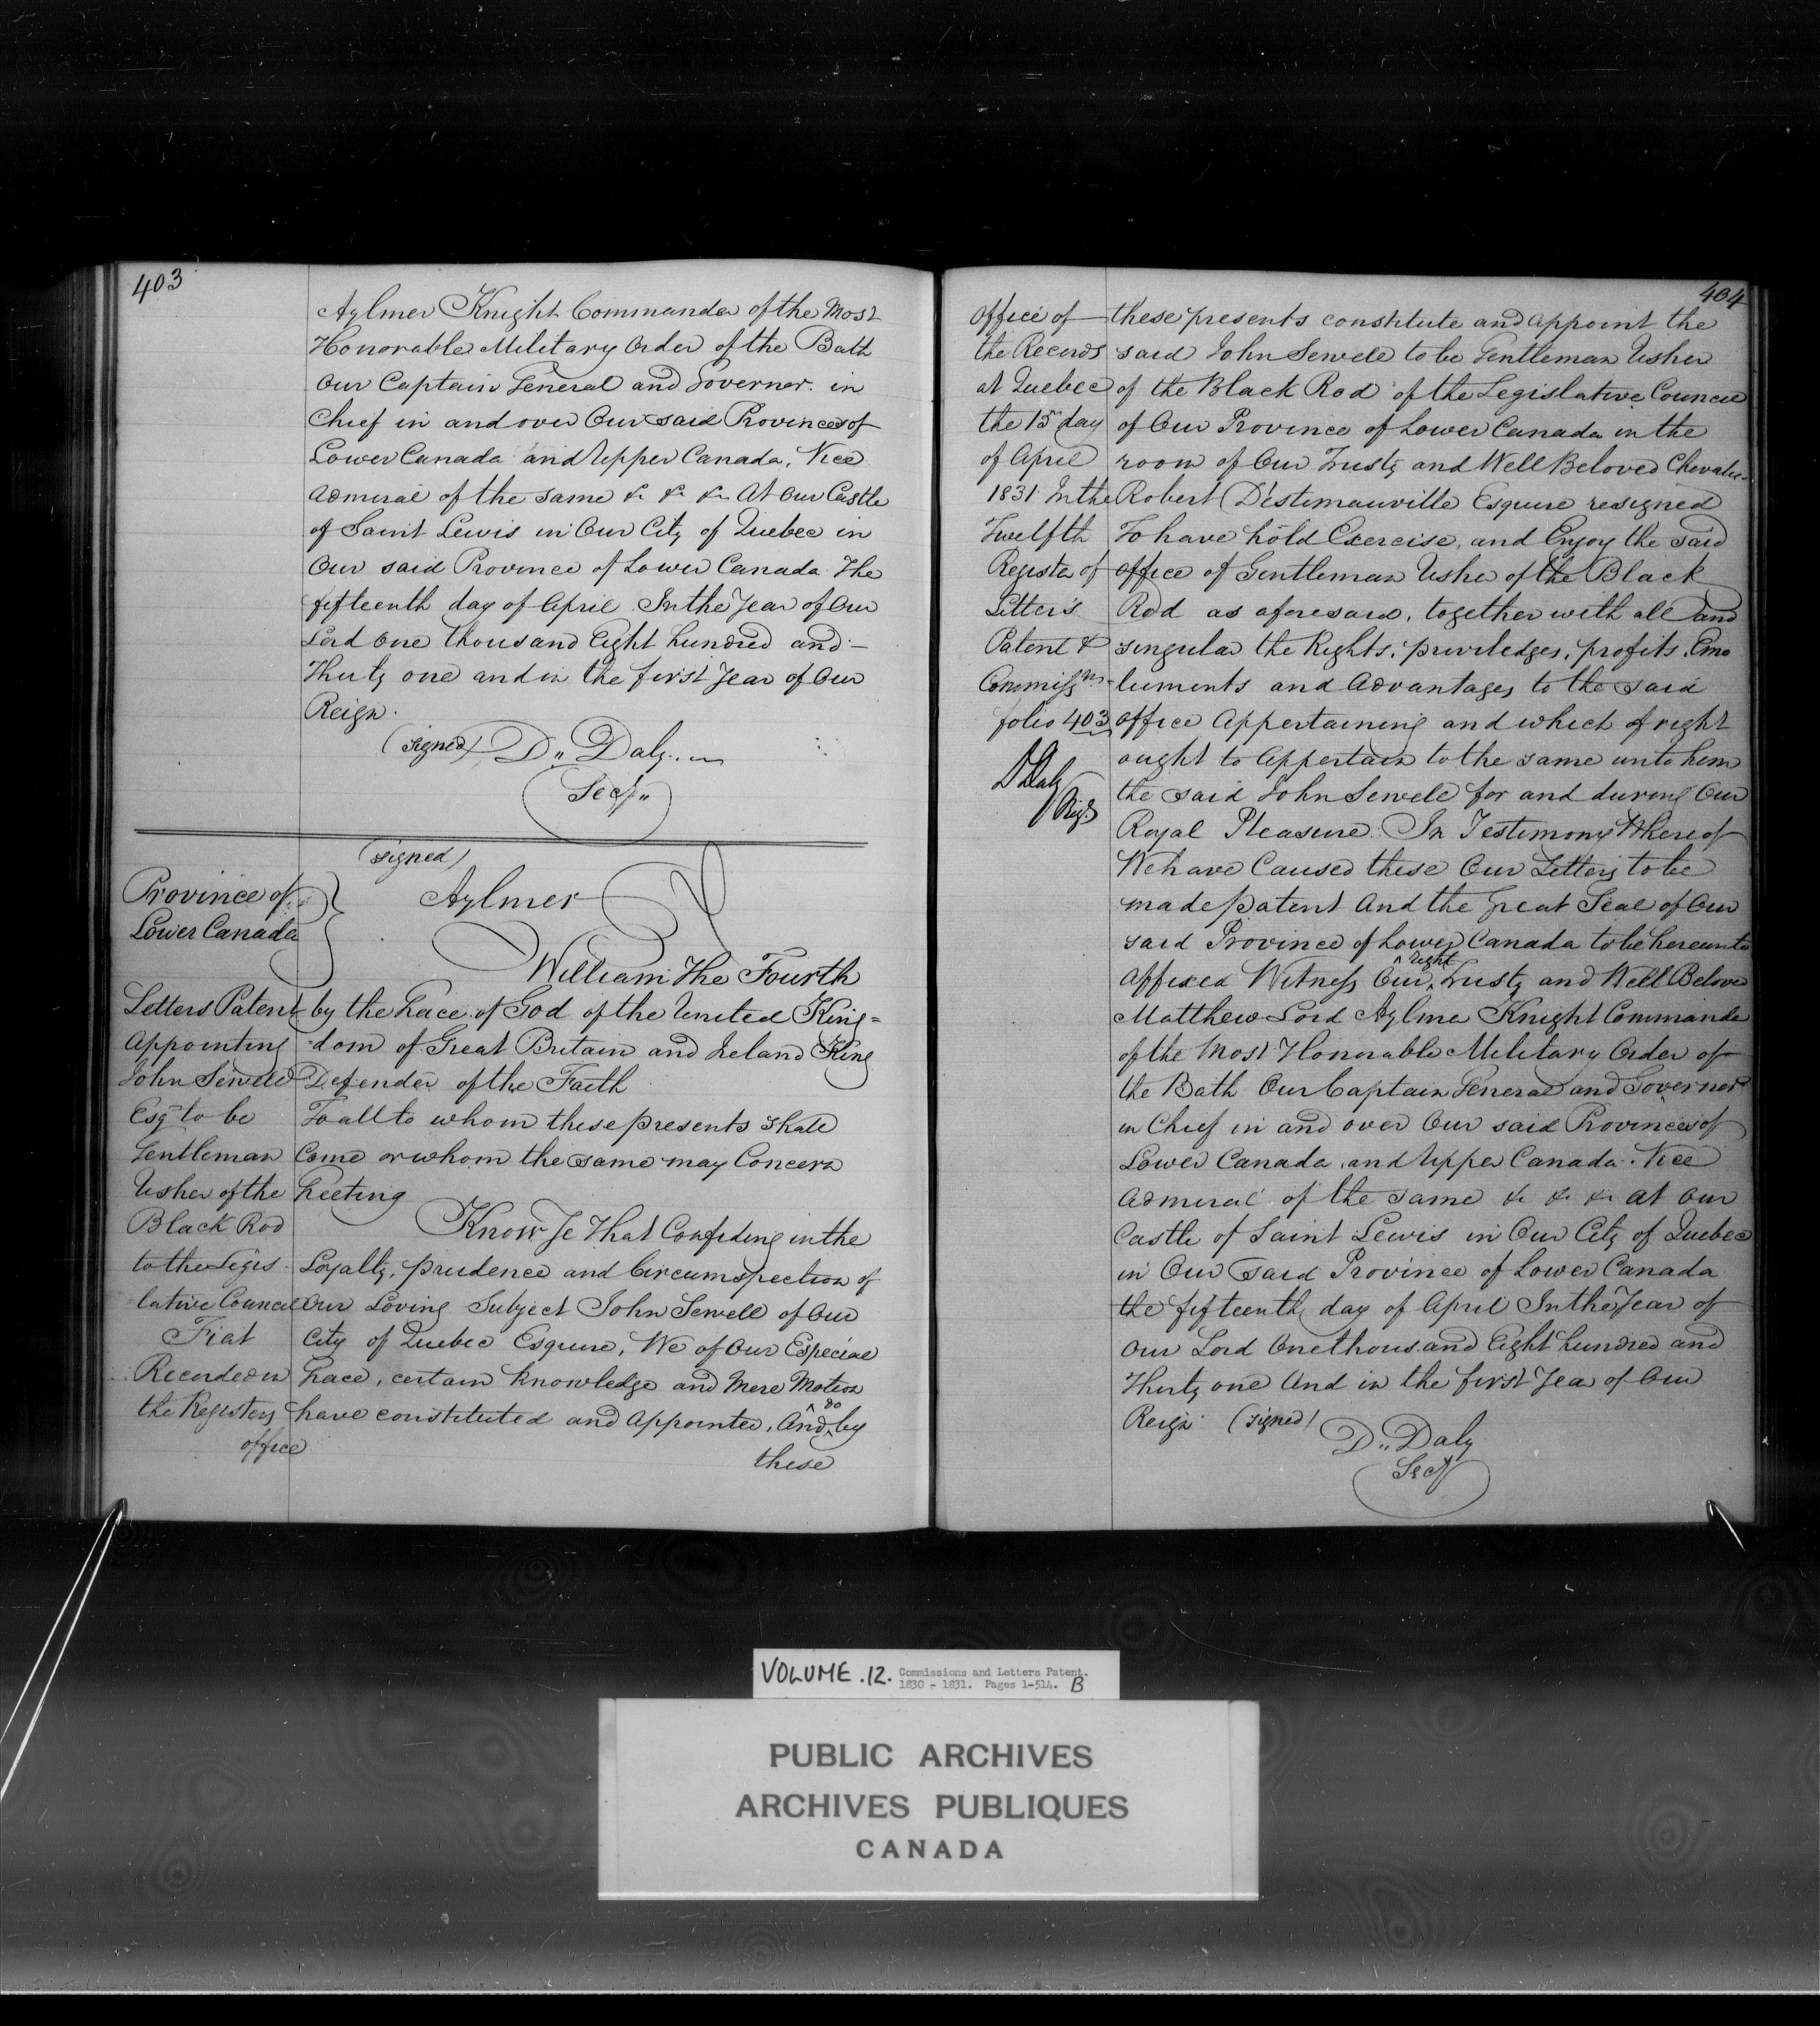 403
Aylmer Knight Commander of the Most
Honorable Military Order of the Bath
Our Captain General and Governor in
Chief in and over Our said Provinces of
Lower Canada and Upper Canada, Vice
Admiral of the same &c &c &c At Our Castle
of Saint Lewis in Our City of Quebec in
Our said Province of Lower Canada The
fifteenth day of April In the Year of Our
Lord One thousand Eight hundred and –
Thirty one and in the first Year of Our
Reign.
(signed) D,, Daly
Secy,,
(signed)
Aylmer
Province of
Lower Canada
William The Fourth
by the Grace of God of the United King=
dom of Great Britain and Ireland King
Defender of the Faith
To all to whom these presents shall
Come or whom the same may Concern
Greeting
Know Ye That Confiding in the
Loyalty, prudence and Circumspection of
Our Loving Subject John Sewell of Our
City of Quebec Esquire, We of Our Especial
Grace, certain knowledge and Mere Motion
have constituted and Appointed, And do by
these
Letters Patent
Appointing
John Sewell
Esqr to be
Gentleman
Usher of the
Black Rod
to the Legis
lative Council
Fiat
Recorded in
the Registers
office
404
Office of
the Records
at Quebec
the 15th day
of April
1831 In the
Twelfth
Register of
Letters
Patent &
Commissns
folio 403
D Daly
Regr
these presents constitute and appoint the
said John Sewell to be Gentleman Usher
of the Black Rod of the Legislative Council
of Our Province of Lower Canada in the
room of Our Trusty and Well Beloved Chevalier
Robert D'Estimauville Esquire resigned
To have hold Exercise, and Enjoy the said
office of Gentleman Usher of the Black
Rod as aforesaid, together with all and
singular the Rights, priviledges, profits, Emo
luments and Advantages to the said
office Appertaining and which of right
ought to Appertain to the same unto him
the said John Sewell for and during Our
Royal Pleasure. In Testimony Whereof
We have Caused these Our Letters to be
made patent And the Great Seal of Our
said Province of Lower Canada to be hereunto
affixed Witness Our right Trusty and Well Beloved
Matthew Lord Aylmer Knight Commander
of the Most Honorable Military Order of
the Bath Our Captain General and Governor
in Chief in and over Our said Provinces of
Lower Canada, and Upper Canada. Vice
Admiral of the same &c &c &c at Our
Castle of Saint Lewis in Our City of Quebec
in Our said Province of Lower Canada
the fifteenth day of April In the Year of
Our Lord One thousand Eight hundred and
Thirty one And in the first Year of Our
Reign (signed)
D,, Daly
Secy
VOLUME .12. Commissions and Letters Patent.
1830 - 1831. Pages 1-514. B
PUBLIC ARCHIVES
ARCHIVES PUBLIQUES
CANADA